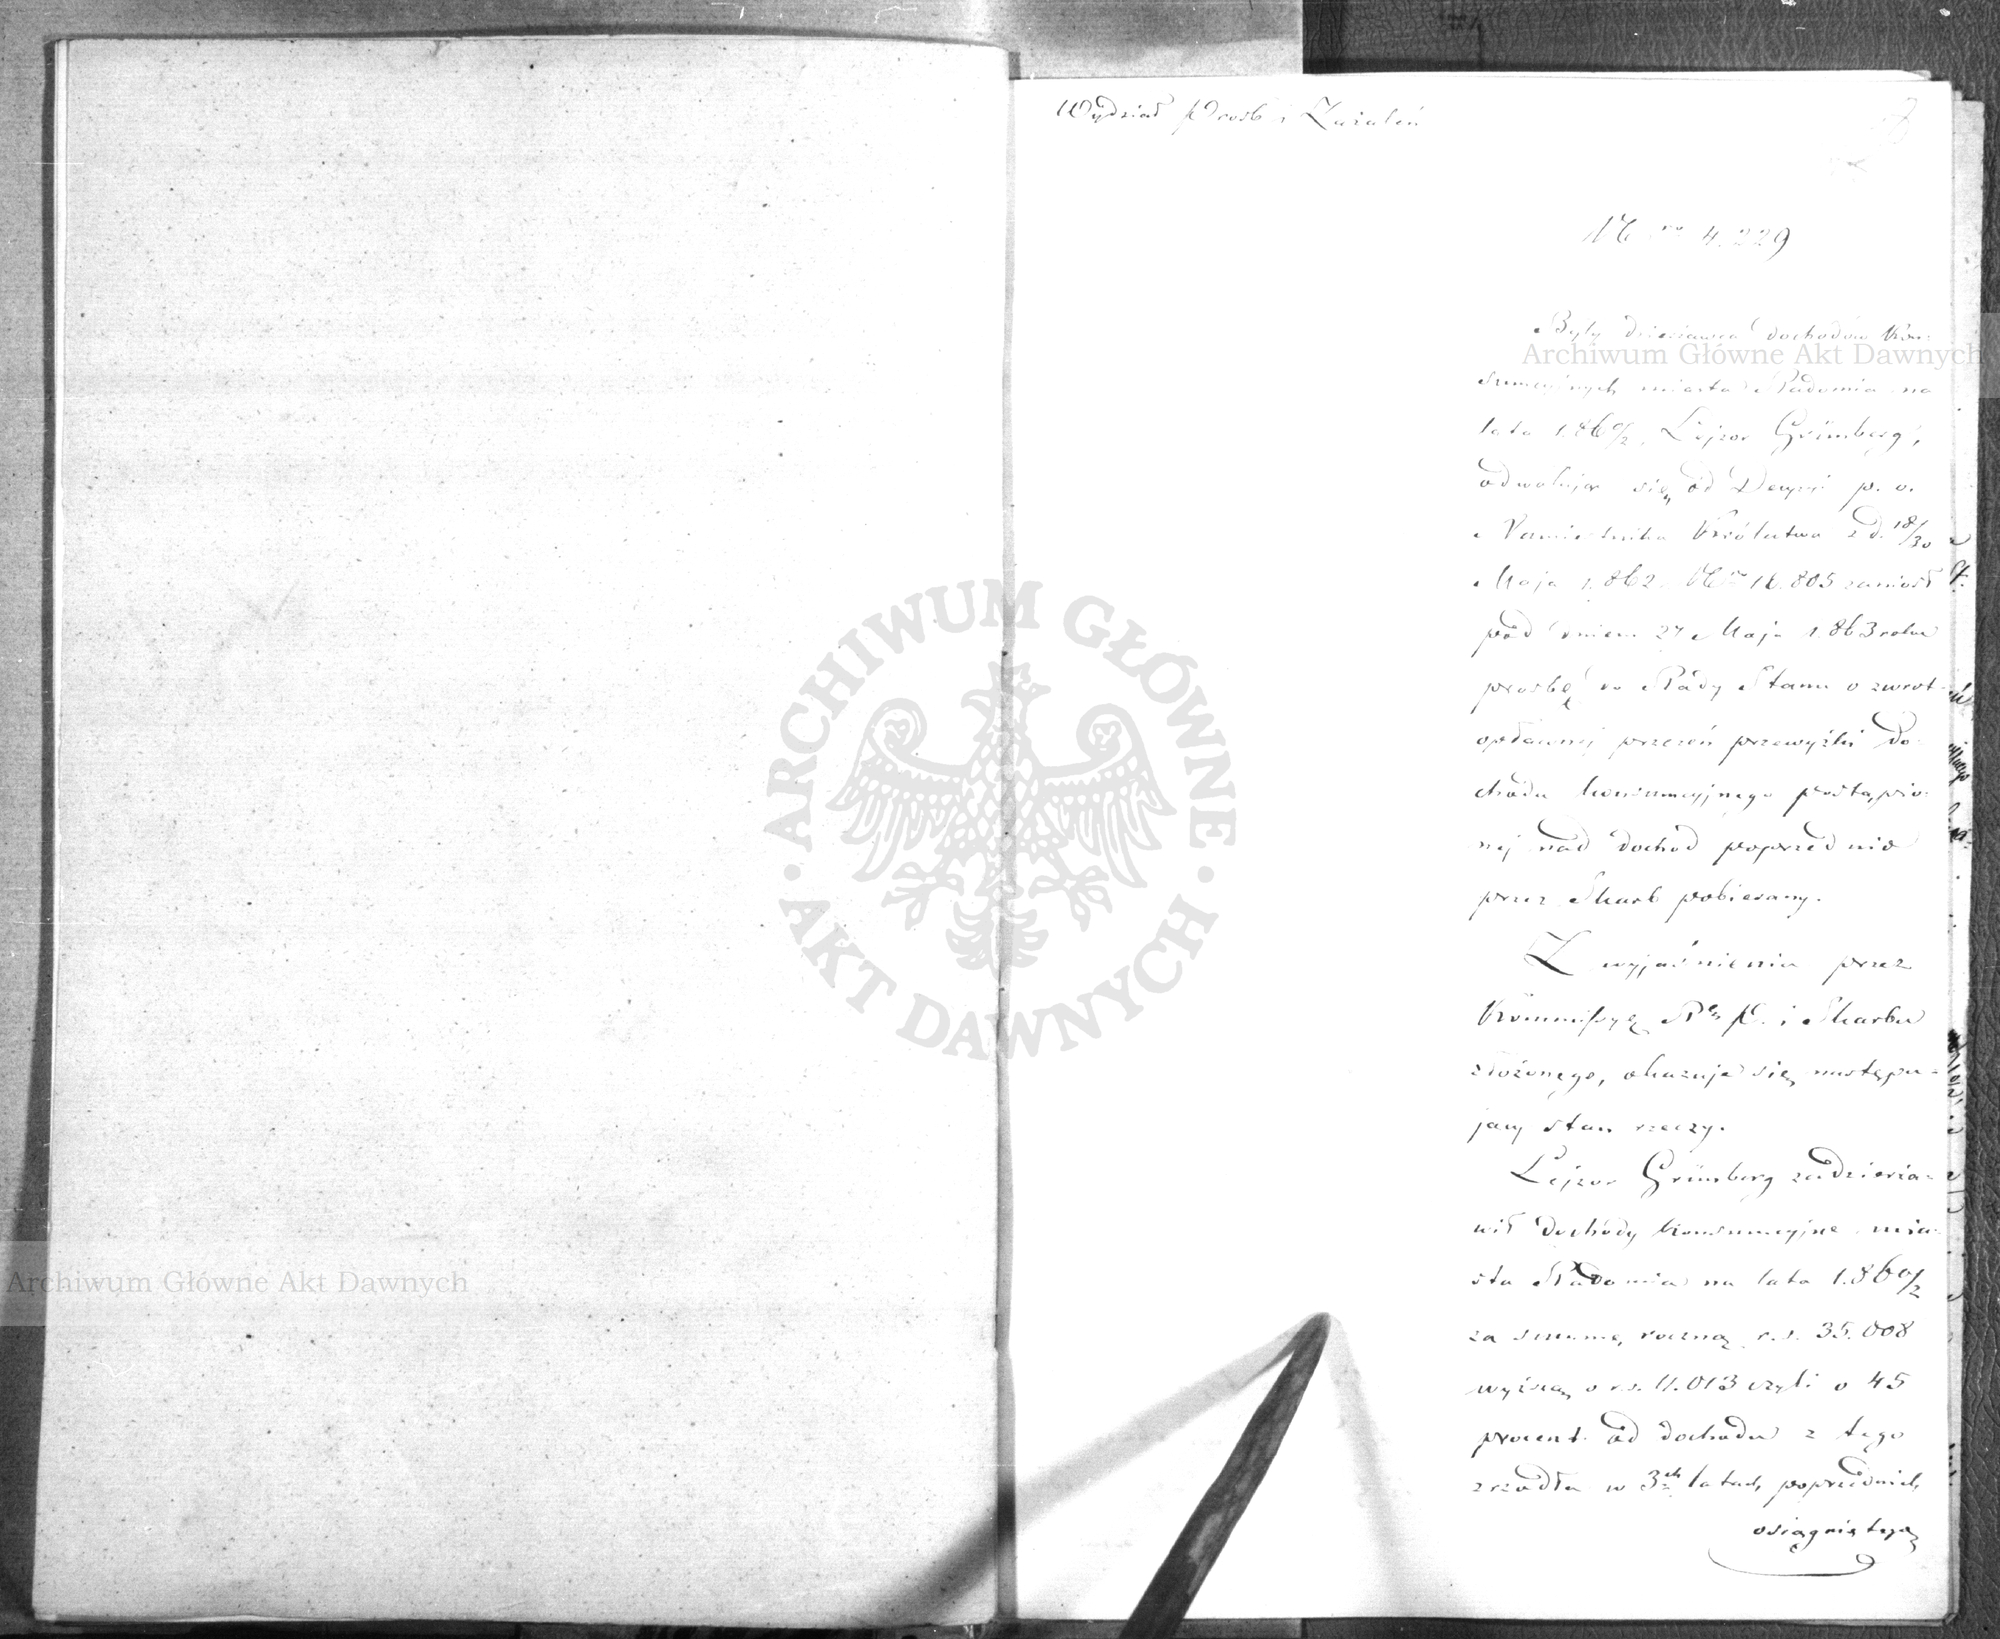 Wydział Prośb i Zażaleń
Nro 4.229
Były dzierżawca dochodów kon-
sumcyjnych miasta Radomia na
lata 1.860/2, Lejzor Grünberg,
odwołując się od Decyzji p. o.
Namiestnika Królestwa z d. 18/30
Maja 1.862. Nro 16.805 zaniósł
pod dniem 27 Maja 1.863 roku
prośbę do Rady Stanu o zwrot
opłaconej przezeń przewyżki do-
chodu konsumcyjnego postąpio-
nej nad dochód poprzednio
przez Skarb pobierany.
Z wyjaśnienia przez
Kommissyę R. P. i Skarbu
złożonego, okazuje się następu-
jący stan rzeczy.
Lejzor Grünberg zadzierża-
wił dochody konsumcyjne mia-
sta Radomia na lata 1.860/2
za summę roczną r. s. 35.008
wyższą o r. s. 11.013 czyli o 45
procent od dochodu z tego
zrzódła w 3ch latach poprzednich
osiągniętego
ARCHIWUM GŁÓWNE
AKT DAWNYCH
Archiwum Główne Akt Dawnych
Archiwum Główne Akt Dawnych